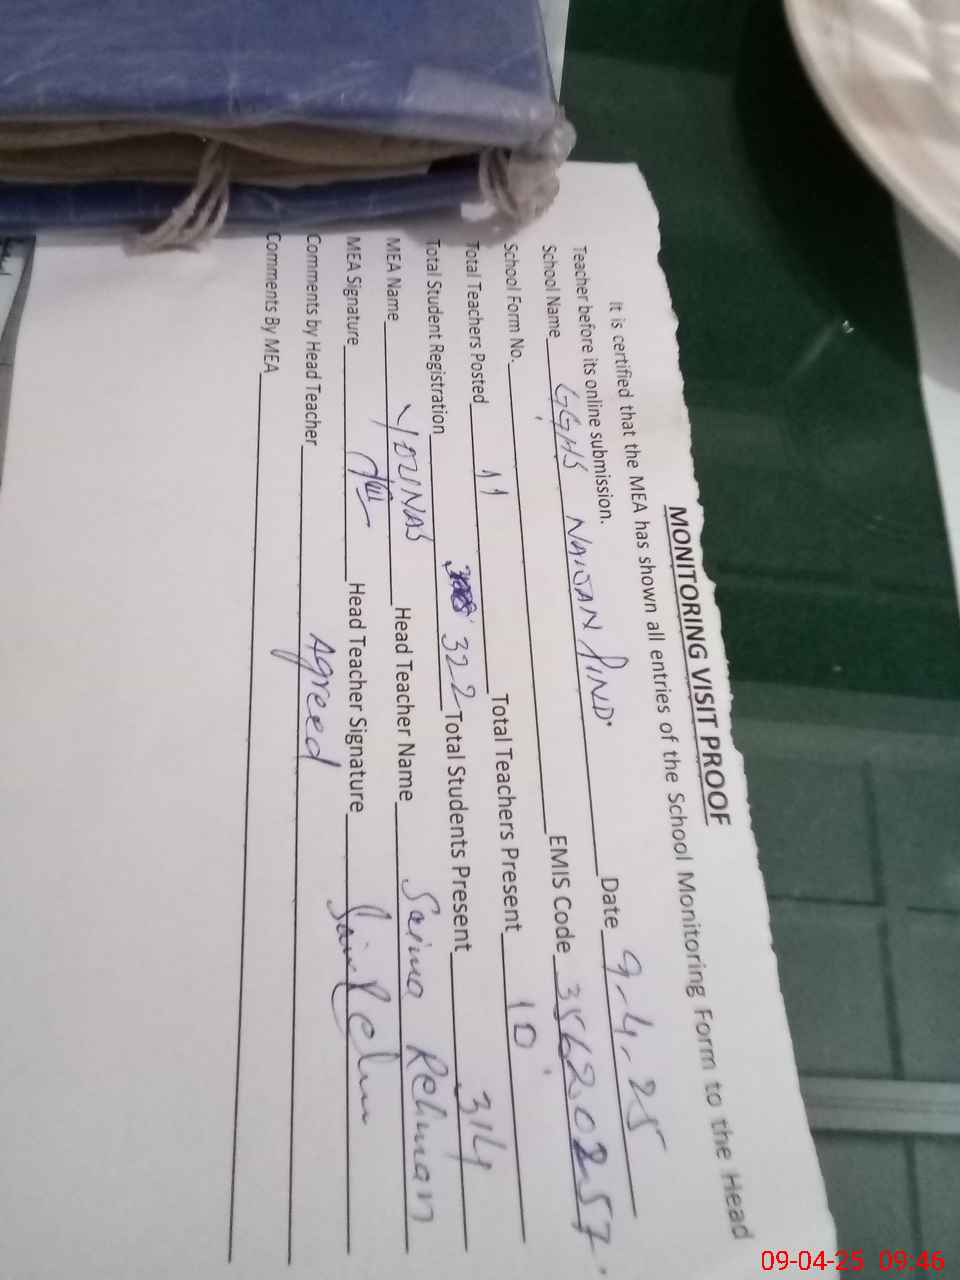 MONITORING VISIT PROOF
It is certified that the MEA has shown all entries of the School Monitoring Form to the Head
Teacher before its online submission.
School Name GGHS NAWAN PIND. Date 9-4-25
School Form No. EMIS Code 35620257.
Total Teachers Posted 11 Total Teachers Present 10
Total Student Registration 322 Total Students Present 314
MEA Name YOUNAS Head Teacher Name Saima Rehman
MEA Signature Head Teacher Signature
Comments by Head Teacher Agreed
Comments By MEA
09-04-25 09:46